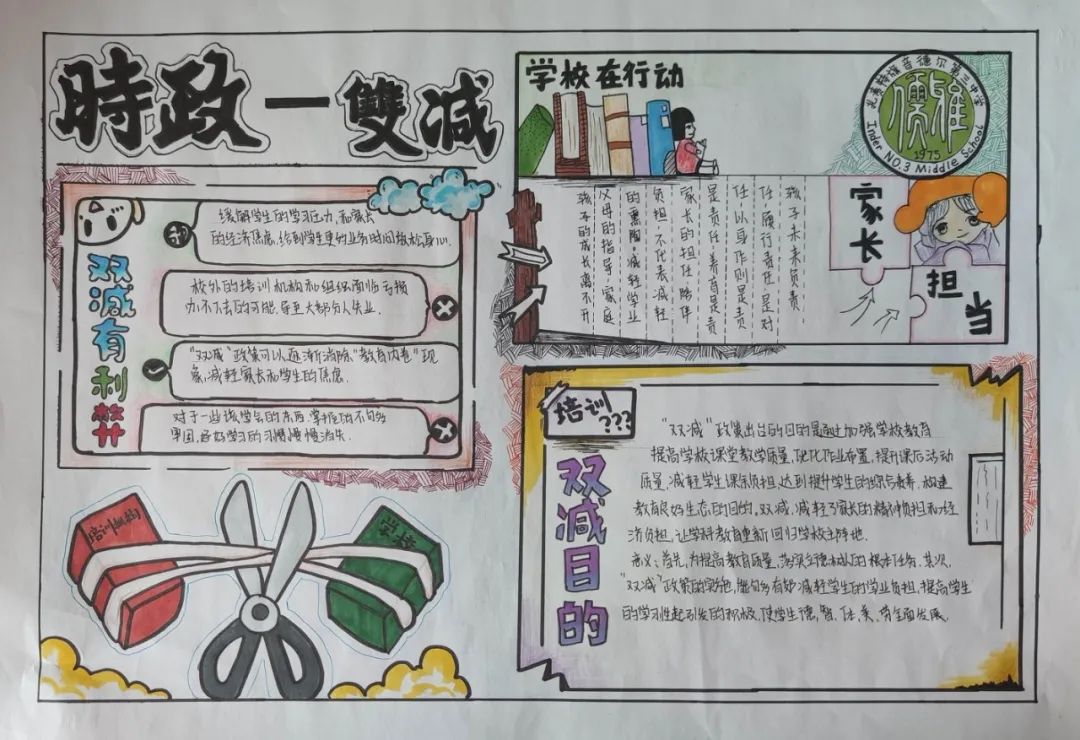 時政一雙减
双减有利弊
缓解学生的学习压力,和家长
的经济焦虑,给到学生更多业务时间放松身心.
校外的培训机构和组织面临亏损
办不下去的可能,导至大部分人失业.
"双减"政策可以逐渐消除"教育内卷"现
象,减轻家长和学生的焦虑.
对于一些该学会的东西,掌握的不句多
牢固,还好学习的习惯慢慢消失.
培训机构
学校
学校在行动
音德尔第三中学
儒雅
1975
Inder NO.3 Middle School
孩子未来负责
任履行责任是对
任以身作则是责
是责任,养育是责
家长的担任,陪伴
负担,不代表减轻
的熏陶,减轻学业
父母的指导,家庭
孩子的成长离不开
家长
担当
培训???
双减目的
"双减"政策出台的目的是通过加强学校教育
提高学校课堂教学质量,优化作业布置,提升课后活动
质量,减轻学生课余负担,达到提升学生的综合素养,构建
教育良好生态的目的,双减,减轻了家长的精神负担和经
济负担,让学科教育重新回归学校主阵地.
意义:首先,为提高教育质量,落实立德树人的根本任务,其次,
"双减"政策的实施,能句多有妙减轻学生的学业负担,提高学生
的学习性起到发的积极,使学生德,智,体,美,劳全面发展.